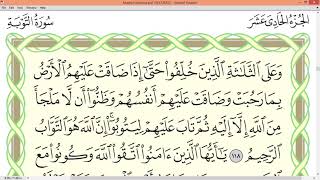 الجزء الحادي عشر
سورة التوبة
وَعَلَى ٱلثَّلَٰثَةِ ٱلَّذِينَ خُلِّفُوا۟ حَتَّىٰٓ إِذَا ضَاقَتْ عَلَيْهِمُ ٱلْأَرْضُ
بِمَا رَحُبَتْ وَضَاقَتْ عَلَيْهِمْ أَنفُسُهُمْ وَظَنُّوٓا۟ أَن لَّا مَلْجَأَ
مِنَ ٱللَّهِ إِلَّآ إِلَيْهِ ثُمَّ تَابَ عَلَيْهِمْ لِيَتُوبُوٓا۟ إِنَّ ٱللَّهَ هُوَ ٱلتَّوَّابُ
ٱلرَّحِيمُ ١١٨ يَٰٓأَيُّهَا ٱلَّذِينَ ءَامَنُوا۟ ٱتَّقُوا۟ ٱللَّهَ وَكُونُوا۟ مَعَ